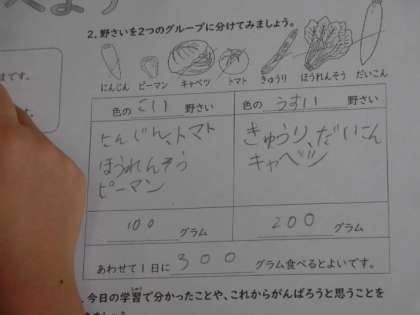 2. 野さいを2つのグループに分けてみましょう。
にんじん ピーマン キャベツ トマト きゅうり ほうれんそう だいこん
色の こい 野さい
色の うすい 野さい
にんじん、トマト
ほうれんそう
ピーマン
きゅうり、だいこん
キャベツ
100 グラム
200 グラム
あわせて1日に 300 グラム食べるとよいです。
今日の学習で分かったことや、これからがんばろうと思うことを
がくしゅう
きましょう
です。